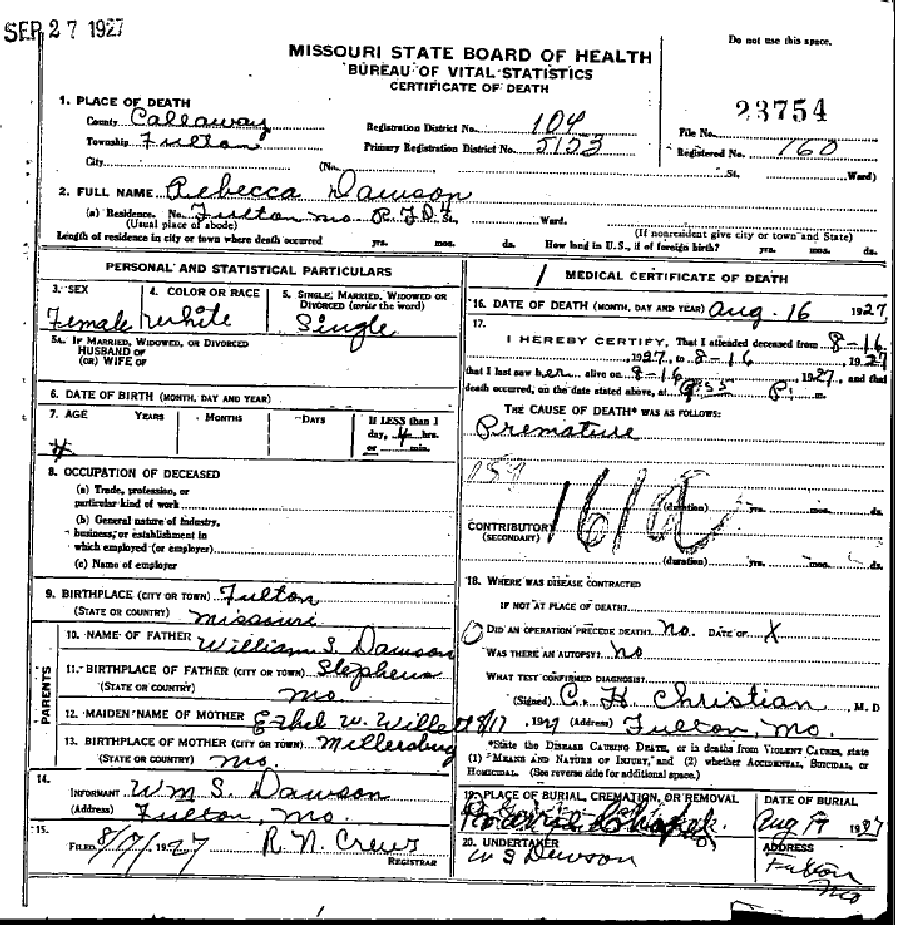 SEP 27 1927
Do not use this space.
MISSOURI STATE BOARD OF HEALTH
BUREAU OF VITAL STATISTICS
CERTIFICATE OF DEATH
23754
1. PLACE OF DEATH
County Callaway
Registration District No. 104
File No.
Township Fulton
Primary Registration District No. 5153
Registered No. 160
City (No. St. Ward)
2. FULL NAME Rebecca Dawson
(a) Residence. No. Fulton Mo R.F.D. 4 St., Ward.
(Usual place of abode) (If nonresident give city or town and State)
Length of residence in city or town where death occurred yrs. mos. ds. How long in U.S., if of foreign birth? yrs. mos. ds.
PERSONAL AND STATISTICAL PARTICULARS
3. SEX
Female
4. COLOR OR RACE
White
5. SINGLE, MARRIED, WIDOWED OR
DIVORCED (write the word)
Single
5a. IF MARRIED, WIDOWED, OR DIVORCED
HUSBAND OF
(OR) WIFE OF
6. DATE OF BIRTH (MONTH, DAY AND YEAR)
7. AGE YEARS MONTHS DAYS If LESS than 1
day, 4 hrs.
or min.
8. OCCUPATION OF DECEASED
(a) Trade, profession, or
particular kind of work
(b) General nature of industry,
business, or establishment in
which employed (or employer)
(c) Name of employer
9. BIRTHPLACE (CITY OR TOWN) Fulton
(STATE OR COUNTRY) Missouri
PARENTS
10. NAME OF FATHER William S. Dawson
11. BIRTHPLACE OF FATHER (CITY OR TOWN) Stephens
(STATE OR COUNTRY) Mo.
12. MAIDEN NAME OF MOTHER Ethel W. Willett
13. BIRTHPLACE OF MOTHER (CITY OR TOWN) Millersburg
(STATE OR COUNTRY) Mo.
14.
INFORMANT Wm S. Dawson
(Address) Fulton, Mo.
15.
FILED 8/17/1927 R. N. Crews
REGISTRAR
MEDICAL CERTIFICATE OF DEATH
16. DATE OF DEATH (MONTH, DAY AND YEAR) Aug. 16 1927
17.
I HEREBY CERTIFY, That I attended deceased from 8-16
, 1927, to 8-16, 1927
that I last saw her alive on 8-16, 1927, and that
death occurred, on the date stated above, at P. m.
THE CAUSE OF DEATH* WAS AS FOLLOWS:
Premature
159
161a
(duration) yrs. mos. ds.
CONTRIBUTORY
(SECONDARY)
(duration) yrs. mos. ds.
18. WHERE WAS DISEASE CONTRACTED
IF NOT AT PLACE OF DEATH?
DID AN OPERATION PRECEDE DEATH? No. DATE OF X
WAS THERE AN AUTOPSY? No
WHAT TEST CONFIRMED DIAGNOSIS?
(Signed) C. H. Christian, M. D
8/17, 1927 (Address) Fulton, Mo.
*State the DISEASE CAUSING DEATH, or in deaths from VIOLENT CAUSES, state
(1) MEANS AND NATURE OF INJURY, and (2) whether ACCIDENTAL, SUICIDAL, or
HOMICIDAL. (See reverse side for additional space.)
19. PLACE OF BURIAL, CREMATION, OR REMOVAL
DATE OF BURIAL
Aug 1927
20. UNDERTAKER
W S Dawson
ADDRESS
Fulton
Mo